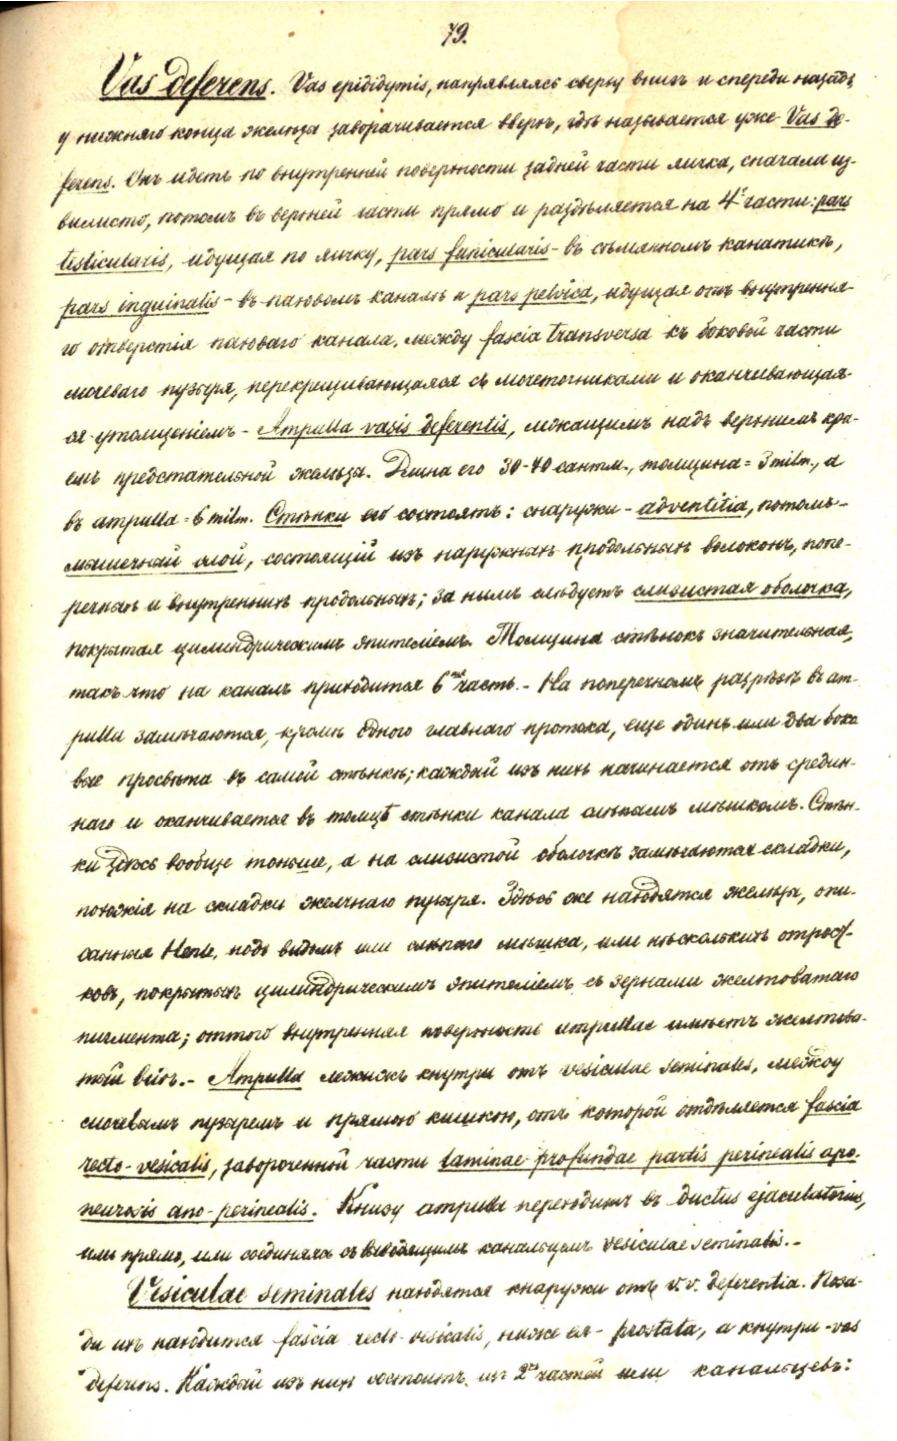 79.
Vas deferens. Vas epididymis, направляясь сверху внизъ и спереди назадъ,
у нижняго конца железа заворачивается вверхъ, гдѣ называется уже Vas de-
ferens. Онъ идетъ по внутренней поверхности задней части яичка, сначала из-
вилисто, потомъ въ верхней части прямо и раздѣляется на 4 части: pars
testicularis, идущая по яичку, pars funicularis - въ сѣмянномъ канатикѣ,
pars inguinalis - въ паховомъ каналѣ и pars pelvica, идущая отъ внутрення-
го отверстія пахового канала, между fascia transversa къ боковой части
мочеваго пузыря, перекрещивающаяся съ мочеточниками и оканчивающая-
ся утолщеніемъ - Ampulla vasis deferentis, лежащимъ надъ верхнимъ кра-
емъ предстательной железы. Длина его 30-40 сантм., толщина = 3 milm., а
въ ampulla = 6 milm. Стѣнки его состоятъ: снаружи - adventitia, потомъ -
мышечный слой, состоящій изъ наружныхъ продольныхъ волоконъ, попе-
речныхъ и внутреннихъ продольныхъ; за нимъ слѣдуетъ слизистая оболочка,
покрытая цилиндрическимъ эпителіемъ. Толщина стѣнокъ значительная,
такъ что на каналъ приходится 6 часть. - На поперечномъ разрѣзѣ въ am-
pulla замѣчаются, кромѣ одного главнаго протока, еще одинъ или два боко
вые просвѣта въ самой стѣнкѣ; каждый изъ нихъ начинается отъ средин-
наго и оканчивается въ толщѣ стѣнки канала слѣпымъ мѣшкомъ. Стѣн-
ки здѣсь вообще тоньше, а на слизистой оболочкѣ замѣчаются складки,
похожія на складки желчнаго пузыря. Здѣсь же находятся железы, опи-
санныя Henle, подъ видомъ или слѣпаго мѣшка, или нѣсколькихъ отрост-
ковъ, покрытыхъ цилиндрическимъ эпителіемъ съ зернами желтоватаго
пигмента; оттого внутренняя поверхность ampullae имѣетъ желтова-
тый видъ. - Ampulla лежитъ кнутри отъ vesiculae seminales, между
мочевымъ пузыремъ и прямою кишкою, отъ которой отдѣляется fascia
recto-vesicalis, завороченной части laminae profundae partis perinealis apo-
neurosis ano-perinealis. Книзу ampulla переходитъ въ ductus ejaculatorius,
или прямо, или соединяясь съ выводящимъ канальцемъ vesiculae seminalis. -
Vesiculae seminales находятся кнаружи отъ v.v. deferentia. Поза-
ди ихъ находится fascia recto-vesicalis, ниже ея - prostata, а кнутри - vas
deferens. Каждый изъ нихъ состоитъ изъ 2хъ частей или канальцевъ: